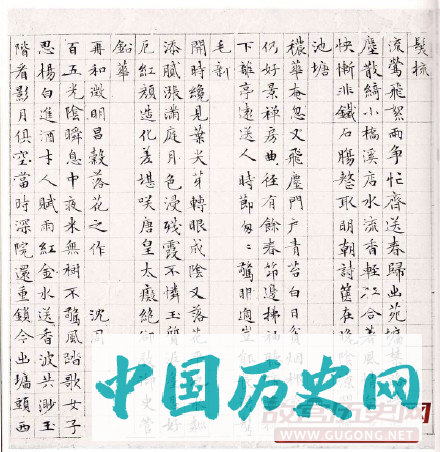 鬓梳
流鶯飛絮兩爭忙齊送春歸出苑墻
塵散綺小橋溪店水流香輕 合著風
怏慚非鐵石腸整取明朝詩篋在
池塘
穠華奄忽又飛塵門戶青苔白日貧
仍好景禪房曲徑有餘春 邊拂
下離亭遠送人時節匆匆驚
毛新
開時纔見葉尖芽轉眼成陰又落花
添賦漲滿庭月色浸殘霞不憐玉質 好
厄紅顏造化羞堪咲唐皇太癡絕 史管
鉛華
再和徵明昌穀落花之作 沈周
百五光陰瞬息中夜來無樹不驚風踏歌女子
思楊白進酒才人賦雨紅金水送香波共渺玉
階看影月俱空當時深院還重鎖今出墻頭西
中国历史网
WWW.GUGONG.NET